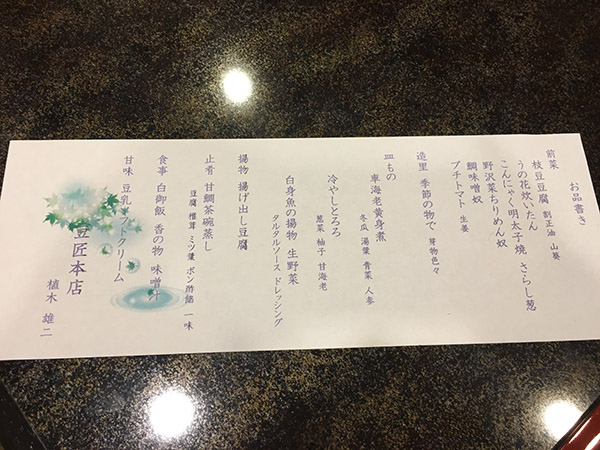 お品書き
前菜
枝豆豆腐 割正油 山葵
うの花炊いたん
こんにゃく明太子焼 さらし葱
野沢菜ちりめん奴
鯛味噌奴
プチトマト 生姜
造里 季節の物で 芽物色々
皿もの
車海老黄身煮
冬瓜 湯葉 青菜 人参
冷やしとろろ
葱菜 柚子 甘海老
白身魚の揚物 生野菜
タルタルソース ドレッシング
揚物 揚げ出し豆腐
止肴 甘鯛茶碗蒸し
豆腐 椎茸 ミツ葉 ポン酢餡 一味
食事 白御飯 香の物 味噌汁
甘味 豆乳ソフトクリーム
豆匠本店
植木 雄二